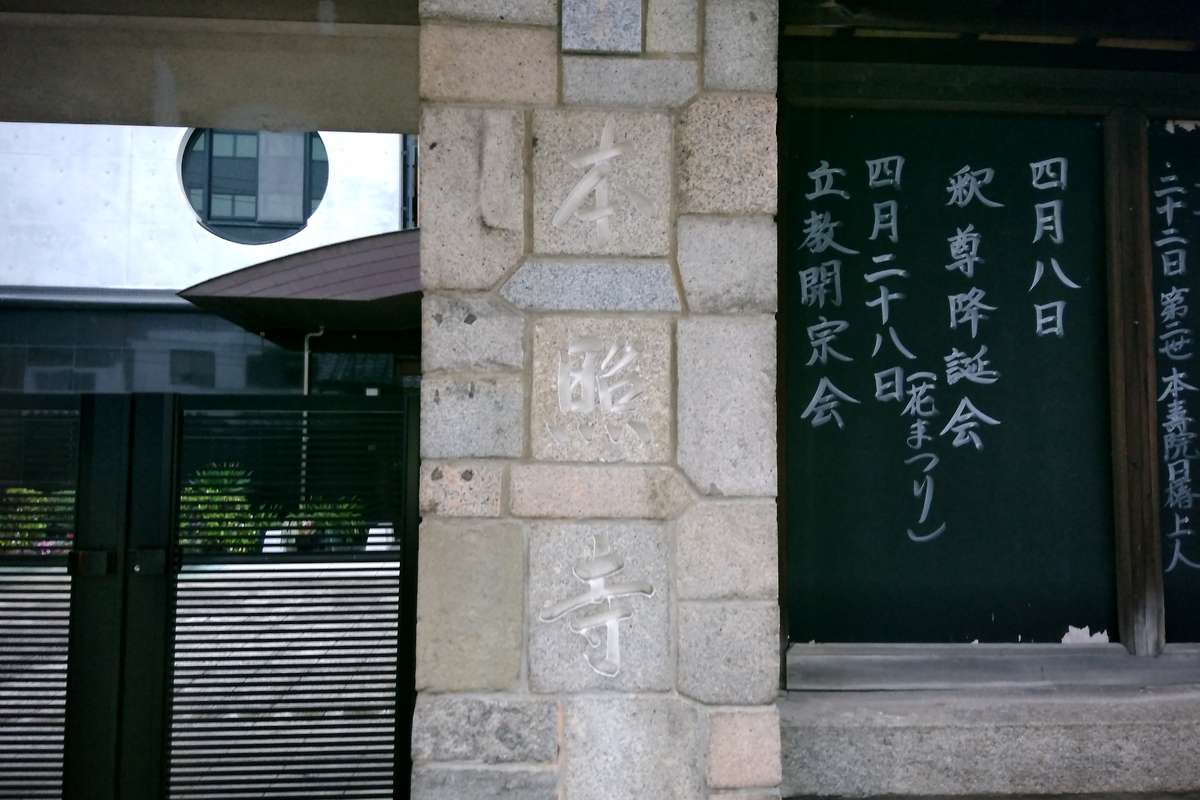 本照寺
四月八日
釈尊降誕会
(花まつり)
四月二十八日
立教開宗会
二十二日 第二世 本寿院日
上人